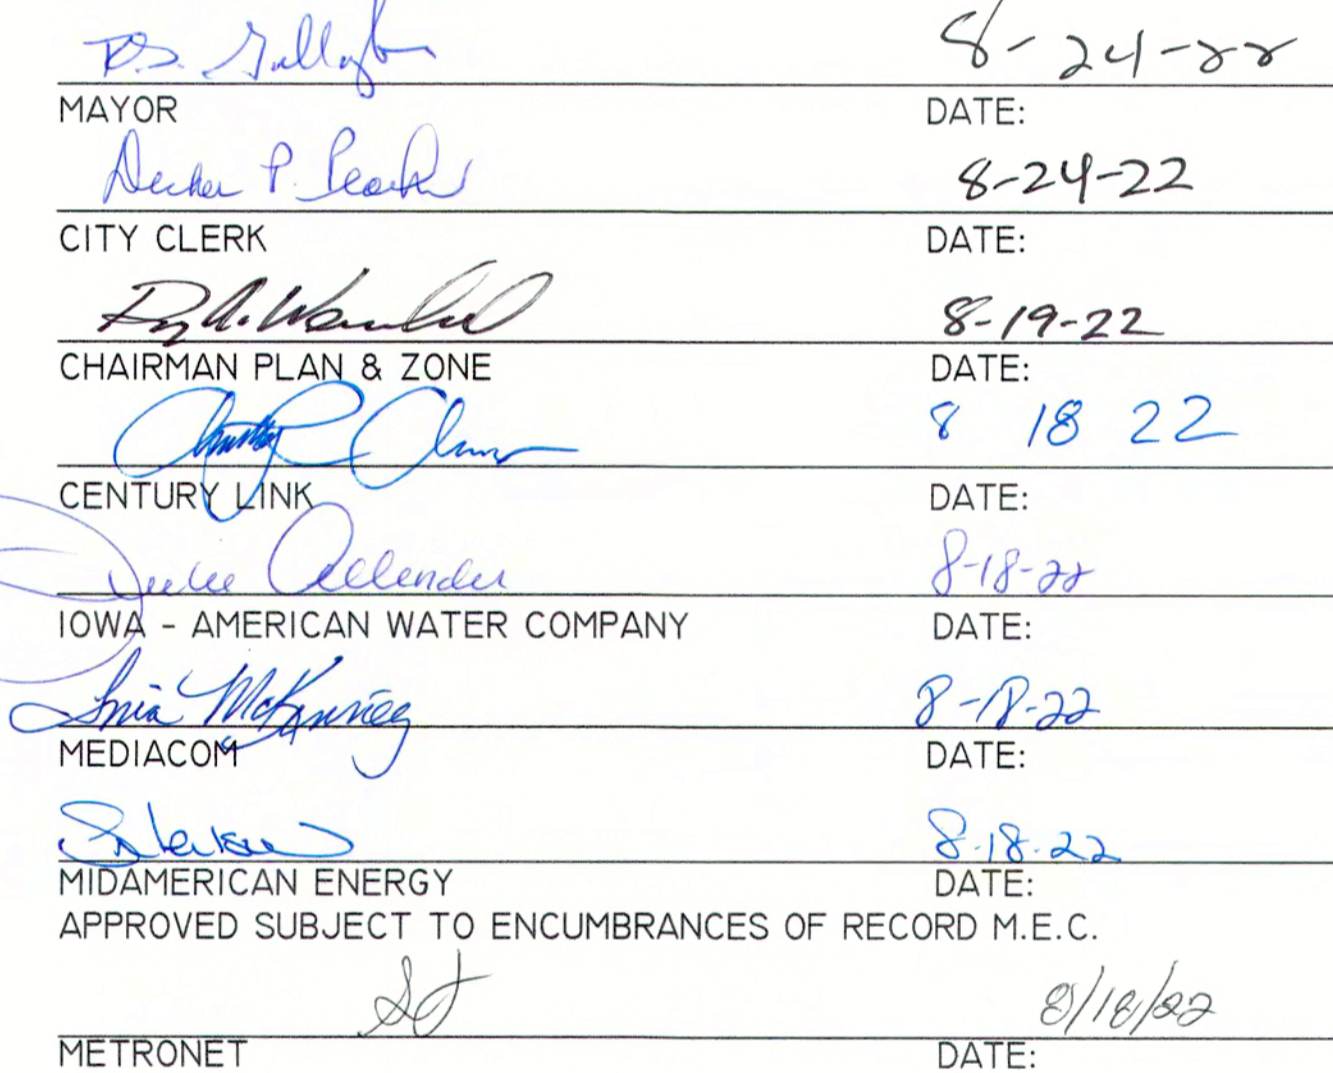 8-24-22
MAYOR DATE:
Decker P. 8-24-22
CITY CLERK DATE:
8-19-22
CHAIRMAN PLAN & ZONE DATE:
8 18 22
CENTURY LINK DATE:
Julie Allender 8-18-22
IOWA - AMERICAN WATER COMPANY DATE:
8-18-22
MEDIACOM DATE:
8.18.22
MIDAMERICAN ENERGY DATE:
APPROVED SUBJECT TO ENCUMBRANCES OF RECORD M.E.C.
8/18/22
METRONET DATE: